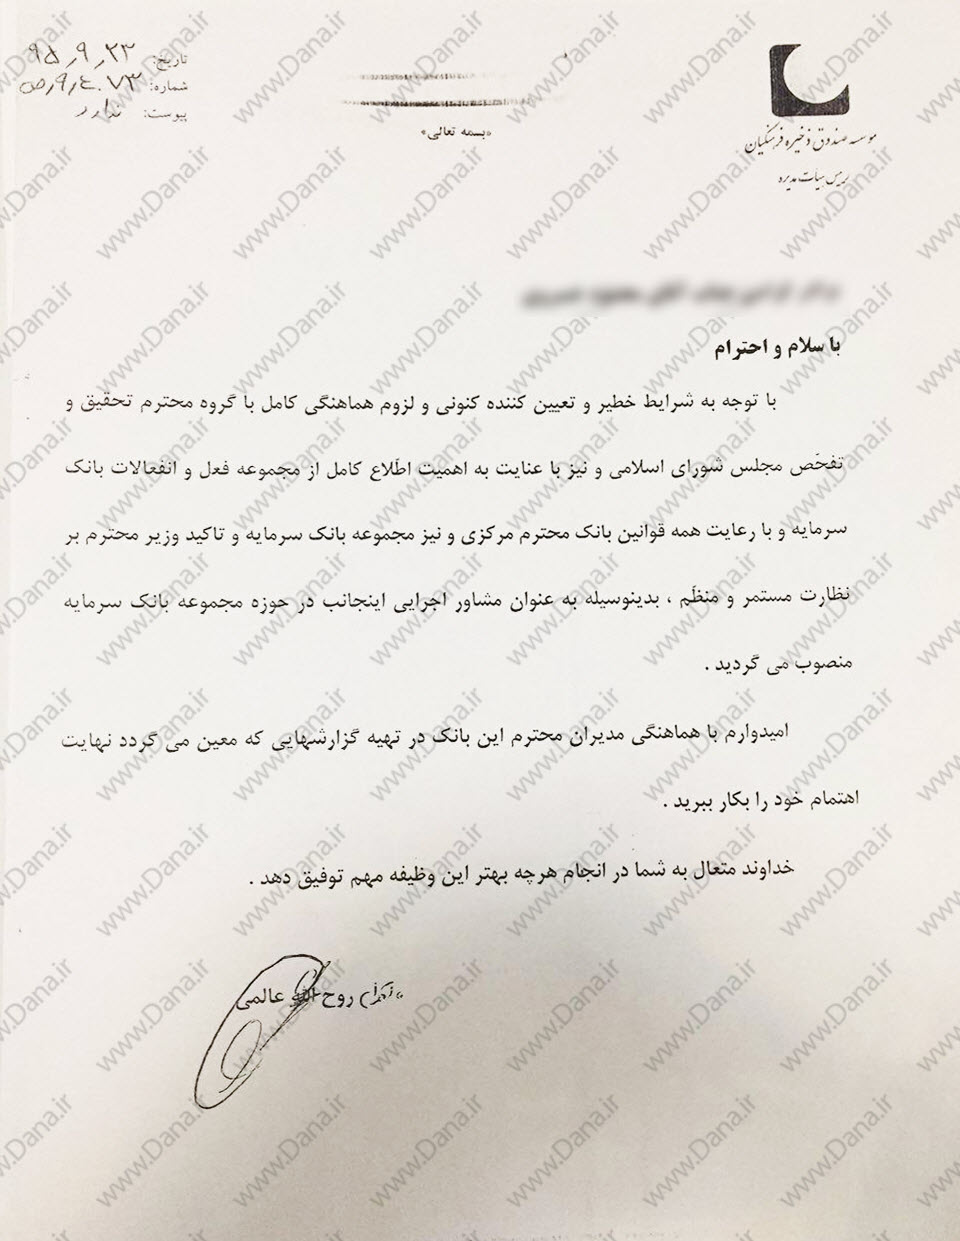 تاریخ: ۹۵٫۹٫۲۳
شماره:
پیوست: ندارد
«بسمه تعالی»
موسسه صندوق ذخیره فرهنگیان
رییس هیأت مدیره
با سلام و احترام
با توجه به شرایط خطیر و تعیین کننده کنونی و لزوم هماهنگی کامل با گروه محترم تحقیق و
تفحّص مجلس شورای اسلامی و نیز با عنایت به اهمیت اطّلاع کامل از مجموعه فعل و انفعالات بانک
سرمایه و با رعایت همه قوانین بانک محترم مرکزی و نیز مجموعه بانک سرمایه و تاکید وزیر محترم بر
نظارت مستمر و منظّم ، بدینوسیله به عنوان مشاور اجرایی اینجانب در حوزه مجموعه بانک سرمایه
منصوب می گردید .
امیدوارم با هماهنگی مدیران محترم این بانک در تهیه گزارشهایی که معین می گردد نهایت
اهتمام خود را بکار ببرید .
خداوند متعال به شما در انجام هرچه بهتر این وظیفه مهم توفیق دهد .
روح الله عالمی
www.Dana.ir